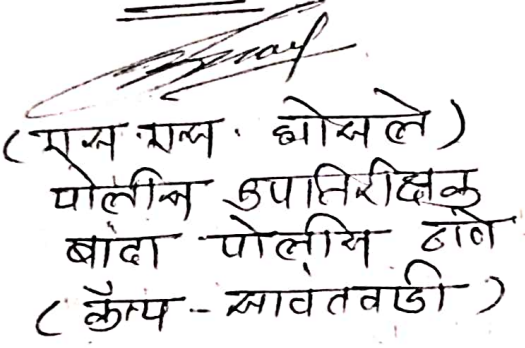 (एस.एस. भोसले)
पोलीस उपनिरीक्षक
बांदा पोलीस ठाणे
(कॅम्प - सावंतवाडी)